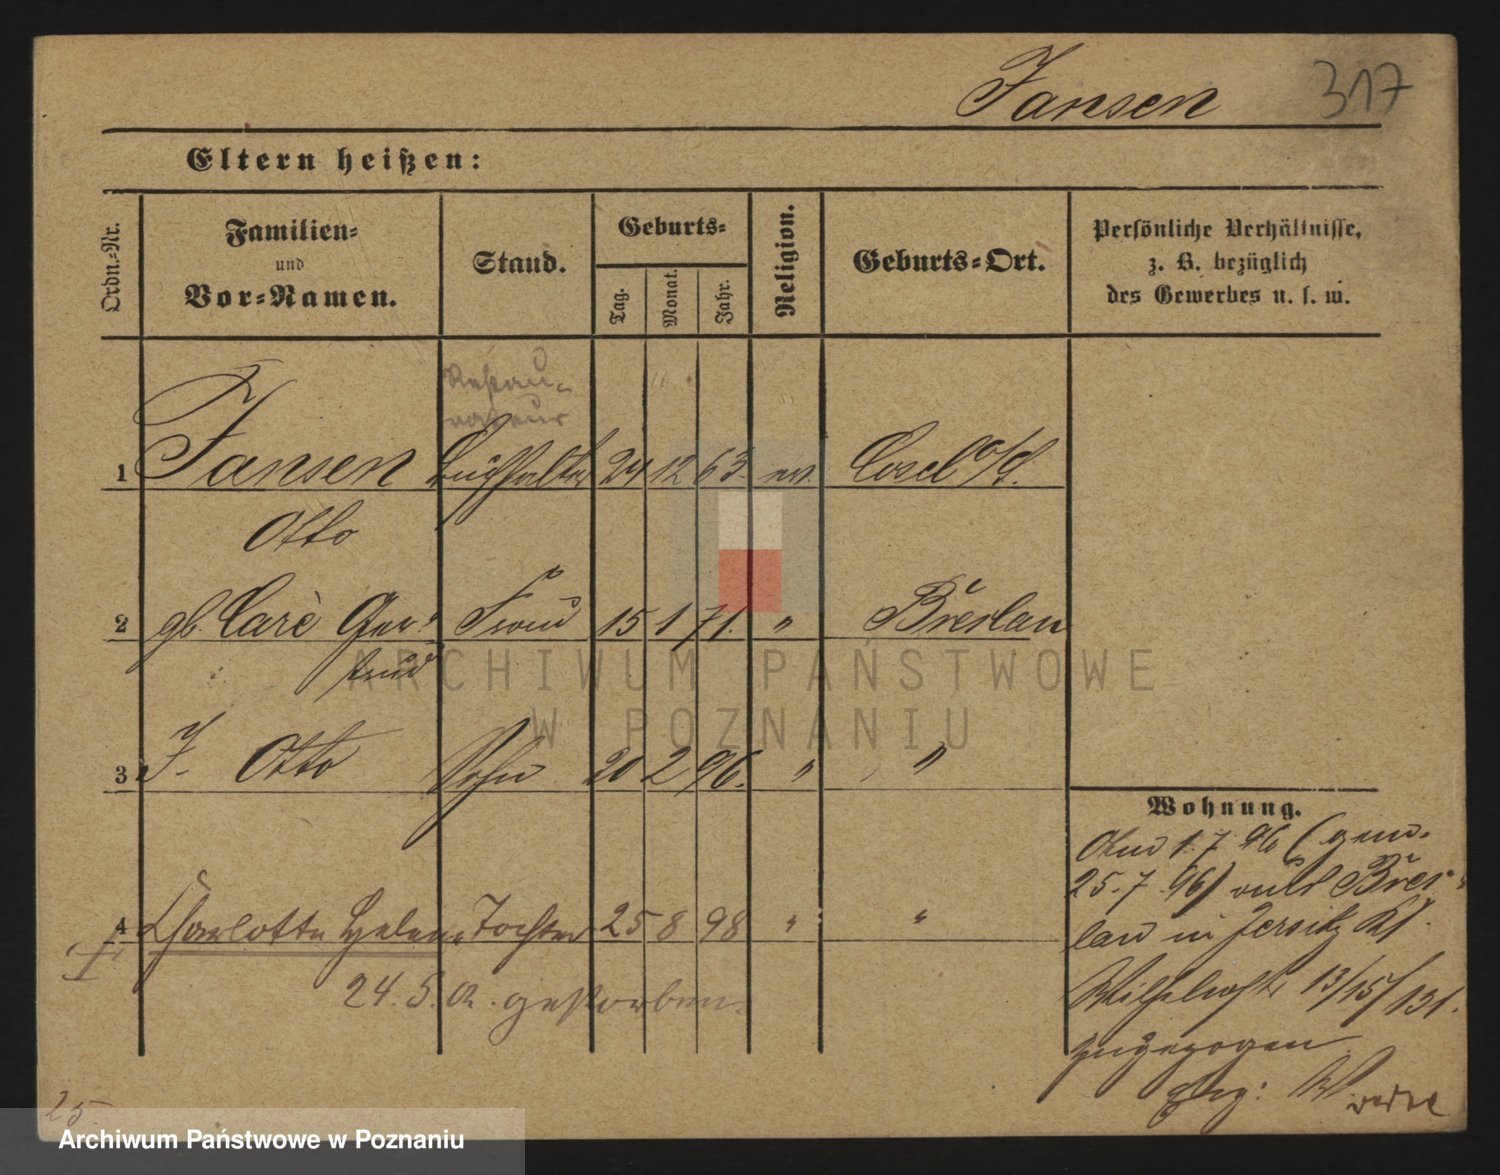 Jansen 317
Eltern heißen:
Ordn.-Nr.
Familien-
und
Vor-Namen.
Stand.
Geburts-
Tag.
Monat.
Jahr.
Religion.
Geburts-Ort.
Persönliche Verhältnisse,
z. B. bezüglich
des Gewerbes u. s. w.
Restau-
rateur
1 Jansen Buchhalter 24 12 63. ev. Cosel o/S.
Otto
2 gb. Carè Ger- Frau 15 1 71. " Breslau
trud
3 J. Otto Sohn 20 2 96. " "
4 Charlotte Helene Tochter 25 8 98 " "
24. 5. 02. gestorben.
Wohnung.
1. 7. 96 (gem.
25. 7. 96) Bres-
lau in Jersitz Kl.
13/15/131.
zugezogen
25.
ARCHIWUM PAŃSTWOWE
W POZNANIU
Archiwum Państwowe w Poznaniu